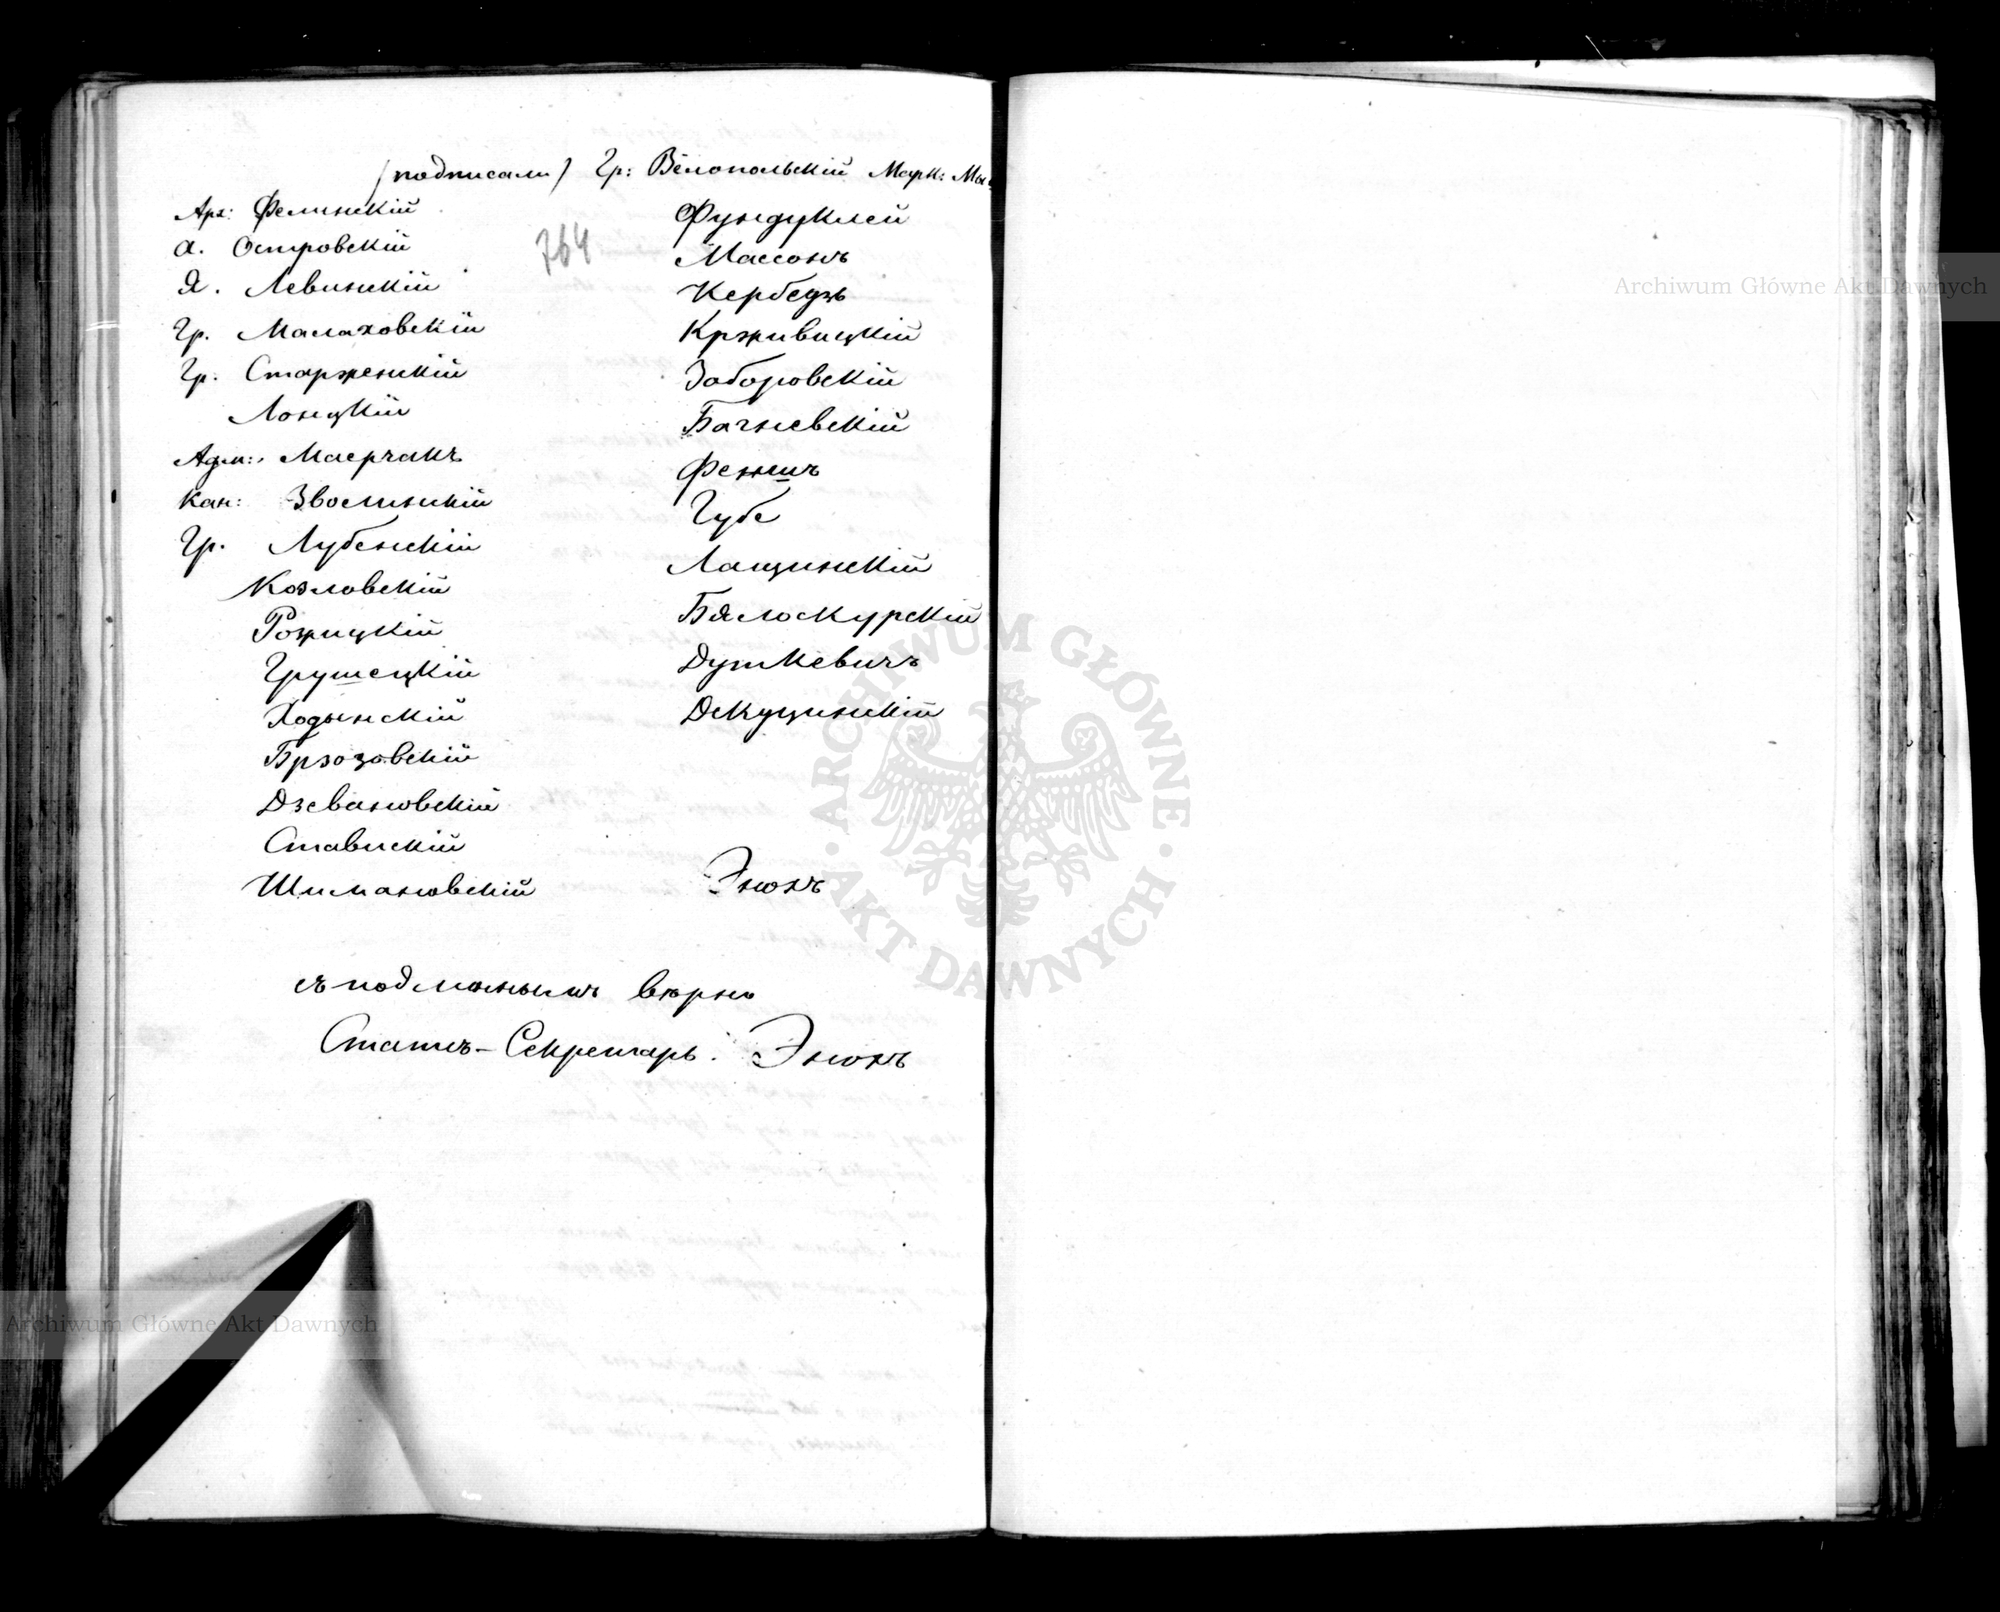 (подписали) Гр: Вѣлопольскій Марк: Мы
Арх: Фелинскій
А. Островскій
Я. Левинскій
Гр. Малаховскій
Гр. Старженскій
Лонцкій
Адм: Маерчакъ
Кан: Зволинскій
Гр. Лубенскій
Козловскій
Рожицкій
Грушецкій
Ходынскій
Брзозовскій
Дзевановскій
Ставискій
Шимановскій
764
Фундуклей
Массонъ
Кербедзъ
Крживицкій
Заборовскій
Багневскій
Феншъ
Губе
Лащинскій
Бялоскурскій
Дуткевичъ
Декуцинскій
Энохъ
съ подлиннымъ вѣрно
Статсъ-Секретарь: Энохъ
Archiwum Główne Akt Dawnych
ARCHIWUM GŁÓWNE · AKT DAWNYCH ·
Archiwum Główne Akt Dawnych